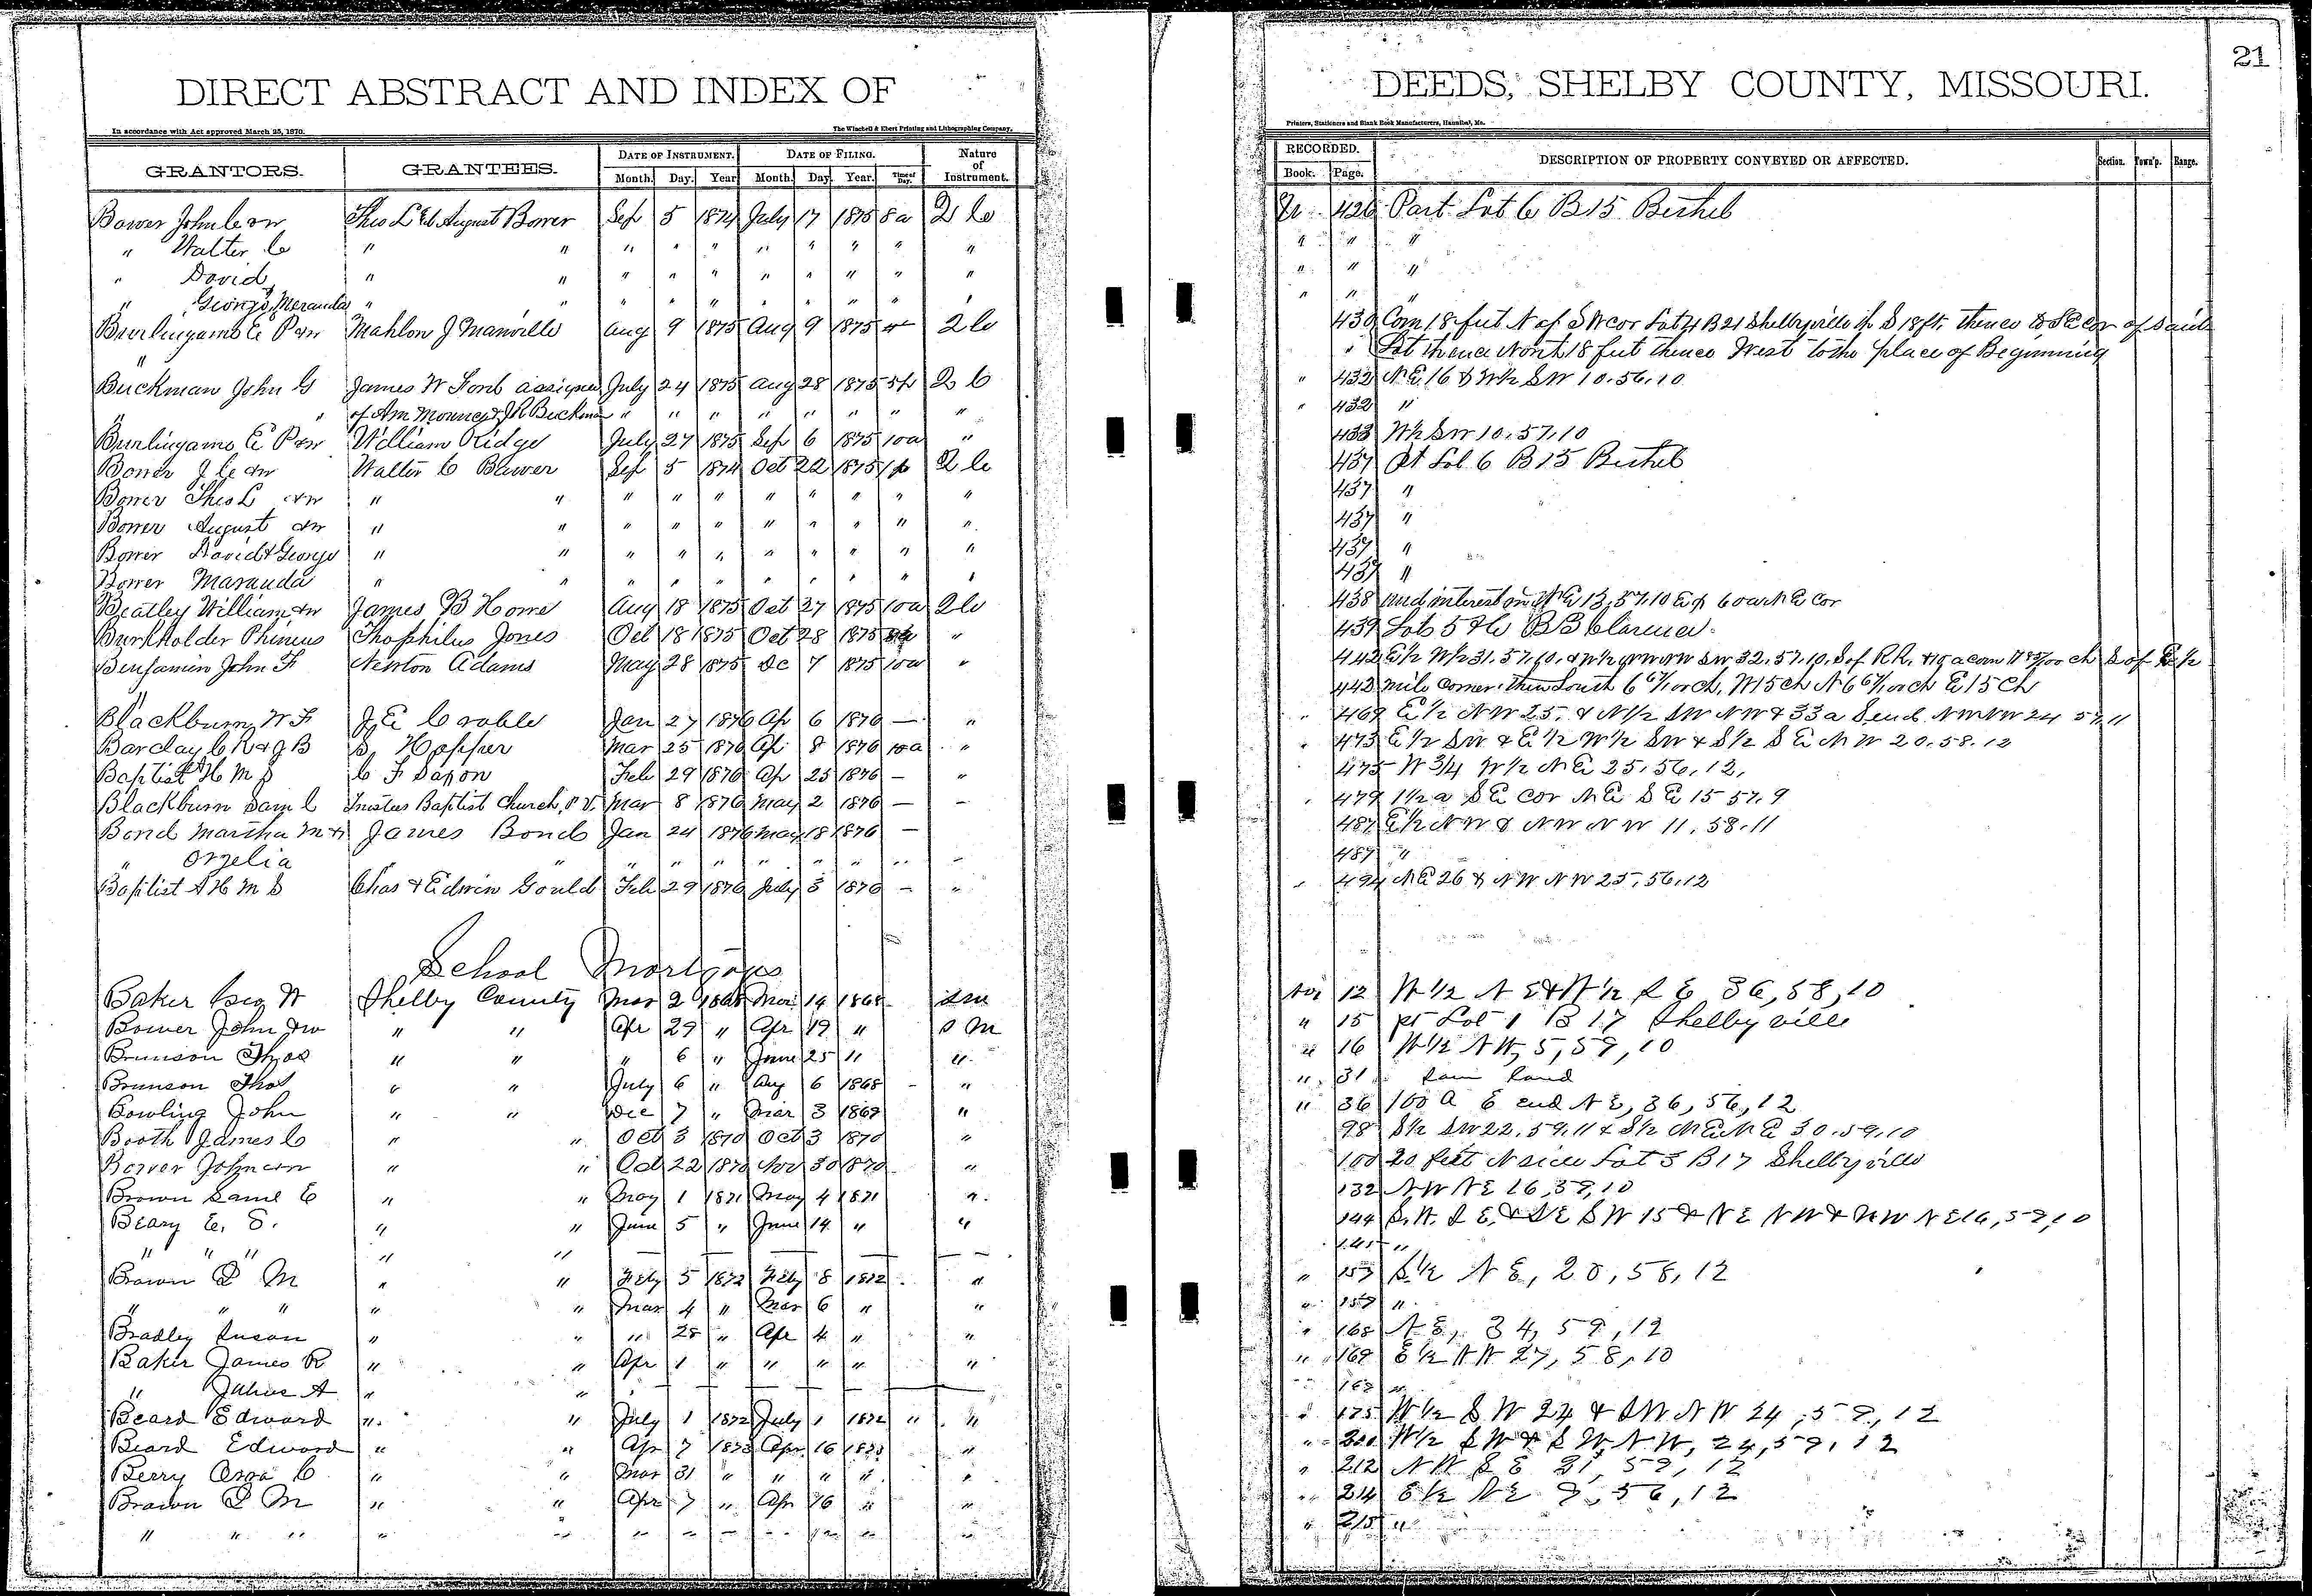 21
DIRECT ABSTRACT AND INDEX OF DEEDS, SHELBY COUNTY, MISSOURI.
In accordance with Act approved March 25, 1870. The Winchell & Ebert Printing and Lithographing Company, Printers, Stationers and Blank Book Manufacturers, Hannibal, Mo.
GRANTORS. GRANTEES. DATE OF INSTRUMENT. DATE OF FILING. Nature of Instrument. RECORDED. DESCRIPTION OF PROPERTY CONVEYED OR AFFECTED. Section. Town'p. Range.
Month. Day. Year Month. Day. Year. Time of Day. Book. Page.
Bower John C & w Theo L & August Bower Sep 5 1874 July 17 1875 8 a 2 C 426 Part Lot 6 B 15 Bethel
" Walter C " " " " " " " " " " " " "
" David " " " " " " " " " " " " "
" George, Meranda " " " " " " " " " " " "
Burlingame E P & w Mahlon J Manville Aug 9 1875 Aug 9 1875 2 C 430 Com 18 feet N of S W cor Lot 4 B 21 Shelbyville th S 18 ft. thence to SE cor of said
" " Lot thence North 18 feet thence West to the place of Beginning
Buckman John G James W Ford assignee July 24 1875 Aug 28 1875 5 p 2 C " 432 N E 16 & W½ SW 10.56.10
" " of Am Mounce & J R Buckman " " " " " " " " " 432 "
Burlingame E P & w William Ridge July 27 1875 Sep 6 1875 10 a " 433 W½ SW 10.57.10
Bower J C & w Walter C Bower Sep 5 1874 Oct 22 1875 1 p 2 C 437 Pt Lot 6 B 15 Bethel
Bower Theo L & w " " " " " " " " " " 437 "
Bower August & w " " " " " " " " " " 437 "
Bower David & George " " " " " " " " " " 437 "
Bower Maranda " " " " " " " " " " 437 "
Beatley William & w James B Howe Aug 18 1875 Oct 27 1875 10 a 2 C 438 und interest in 13.57.10 60 a N E cor
Burkholder Phineus Thophilus Jones Oct 18 1875 Oct 28 1875 " 439 Lots 5 & 6 B B Clarence
Benjamin John F Newton Adams May 28 1875 Dc 7 1875 10 a " 442 E½ W½ 31.57.10. & W½ NW SW 32.57.10. S of R R.
" 442 mile corner. then South 6 67/100 ch, W 15 ch N 6 67/100 ch E 15 Ch
Blackburn W F J E Coable Jan 27 1876 Ap 6 1876 — " " 469 E½ NW 25. & N½ SW NW & 33 a S end NW NW 24 57.11
Barclay C R & J B S Hopper Mar 25 1876 Ap 8 1876 10 a " " 473 E½ SW & E½ W½ SW & S½ S E N W 20.58.12
Baptist A H M S C F Saxon Feb 29 1876 Ap 25 1876 — " 475 W 3/4 W½ N E 25.56.12.
Blackburn Sam C Trustees Baptist Church, S. V. Mar 8 1876 May 2 1876 — — " 479 1½ a S E cor N E S E 15 57.9
Bond Martha M & James Bond Jan 24 1876 May 18 1876 — 487 E½ N W & N W N W 11.58.11
" Orzelia " " " " " " " " — 487 "
Baptist A H M S Chas & Edwin Gould Feb 29 1876 July 3 1876 — " " 494 N E 26 & N W N W 25.56.12
School Mortgages
Baker Geo W Shelby County Mar 2 1868 Mar 14 1868 S M 12 W ½ N E & W ½ S E 36,58,10
Bower John & w " " Apr 29 " Apr 19 " S M " 15 pt Lot 1 B 17 Shelbyville
Brunson Thos " " " 6 " June 25 " " " 16 W½ N W, 5, 59, 10
Brunson Thos " " July 6 " Aug 6 1868 — " " 31 Sam Land
Bowling John " " Dec 7 " Mar 3 1869 " " 36 100 A E end N E, 36, 56, 12
Booth James C " " Oct 3 1870 Oct 3 1870 " 98 S½ SW 22.59.11 & S½ N E N E 30.59.10
Bower John & w " " Oct 22 1870 Nov 30 1870 " 100 20 feet N side Lot 3 B 17 Shelbyville
Brown Saml E " " May 1 1871 May 4 1871 " 132 N W N E 16,59,10
Beary E. S. " " June 5 " June 14 " " 144 S. W. S E. & S E S W 15 & N E N W & N W N E 16, 59, 10
" " " " " — — — — — — — 145 "
Brown P M " " Feby 5 1872 Feby 8 1872 " " 157 S. ½ N E, 20, 58, 12
" " " " " Mar 4 " Mar 6 " " " 159 "
Bradley Susan " " " 28 " Apr 4 " " " 168 N E, 34, 59, 12
Baker James R " " Apr 1 " " " " " " 169 E ½ N W 27, 58, 10
" Julius A " " — — — — — — — 169 "
Beard Edward " " July 1 1872 July 1 1872 " " " 175 W ½ S W 24 & S W N W 24, 59, 12
Beard Edward " " Apr 7 1873 Apr 16 1873 " " 200 W½ S W & S W, N W, 24, 59, 12
Berry Asra C " " Mar 31 " " " " " " 212 N W S E 31, 59, 12
Brown P M " " Apr 7 " Apr 16 " " " 214 E ½ N E 9, 56, 12
" " " " " " " " " " " " " 215 "